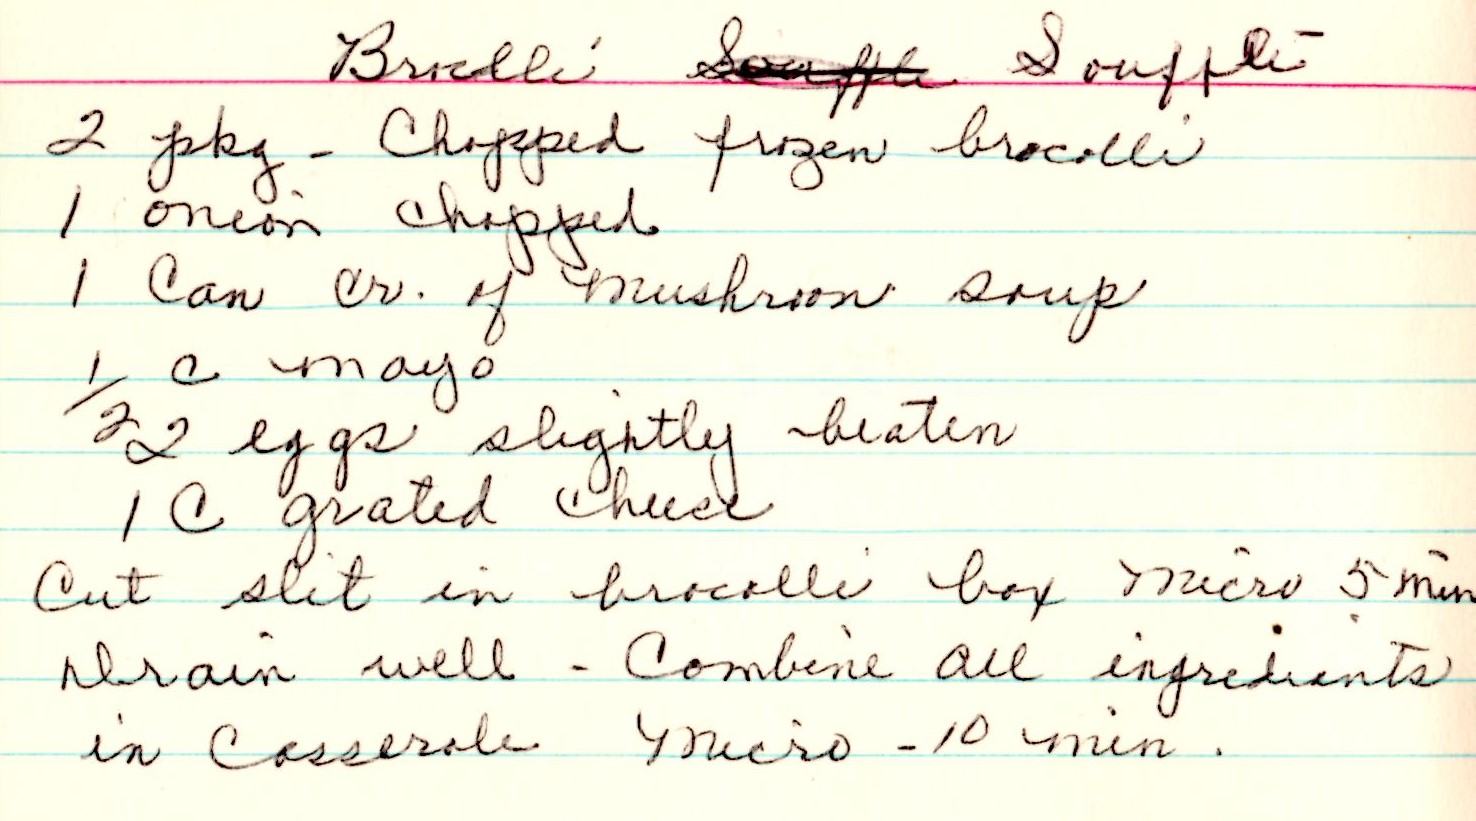 Brocolli Souffle Soufflé
2 pkg - Chopped frozen brocolli
1 onion chopped
1 Can cr. of Mushroom soup
1/2 c mayo
2 eggs slightly beaten
1 C grated cheese
Cut slit in brocolli box Micro 5 min
Drain well - Combine all ingredients
in Casserole Micro - 10 min.